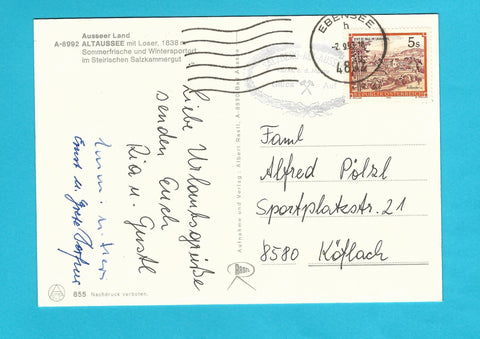 Ausseer Land
A-8992 ALTAUSSEE mit Loser, 1838 m
Sommerfrische und Wintersportort
im Steirischen Salzkammergut
Liebe Urlaubsgrüße
senden Euch
Ria u. Gustl
Ernst u. Grete
Aufnahme und Verlag: Albert Rastl, A-8990 Bad Aussee
EBENSEE
h
4802
5s
REPUBLIK ÖSTERREICH
Glück Auf
Faml
Alfred Pölzl
Sportplatzstr. 21
8580 Köflach
Rastl
655 Nachdruck verboten.